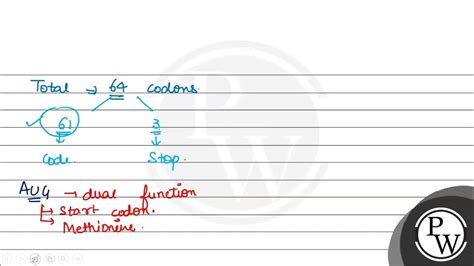 Total → 64 codons.
✓ 61 3
Code. Stop.
AUG → dual function
↳ Start codon.
↳ Methionine.
P
W
P
W